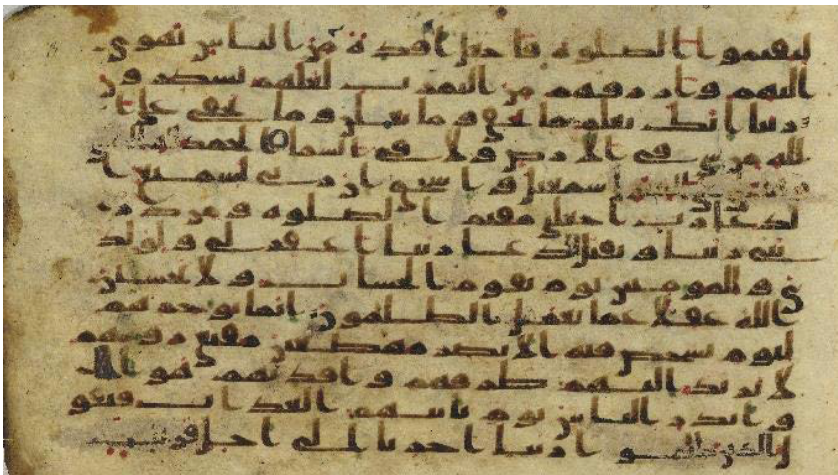 ليقيموا الصلوه فاجعل افدة من الناس تهوي
اليهم وارزقهم من الثمرت لعلهم يشكرون
ربنا انك تعلم ما نخفي وما نعلن وما يخفى على ا
لله من شي في الارض ولا في السما الحمد لله
اسمعيل واسحق ان ربي لسميع ا
لدعا رب اجعلني مقيم الصلوه ومن ذر
يتي ربنا وتقبل دعا ربنا اغفر لي ولولد
ي وللمومنين يوم يقوم الحساب ولا تحسبن
الله غفلا عما يعمل الظلمون انما يوخرهم
ليوم تشخص فيه الابصر مهطعين مقنعي روسهم
لا يرتد اليهم طرفهم وافدتهم هوا
وانذر الناس يوم ياتيهم العذاب فيقو
ل الذين ظلموا ربنا اخرنا الى اجل قريب